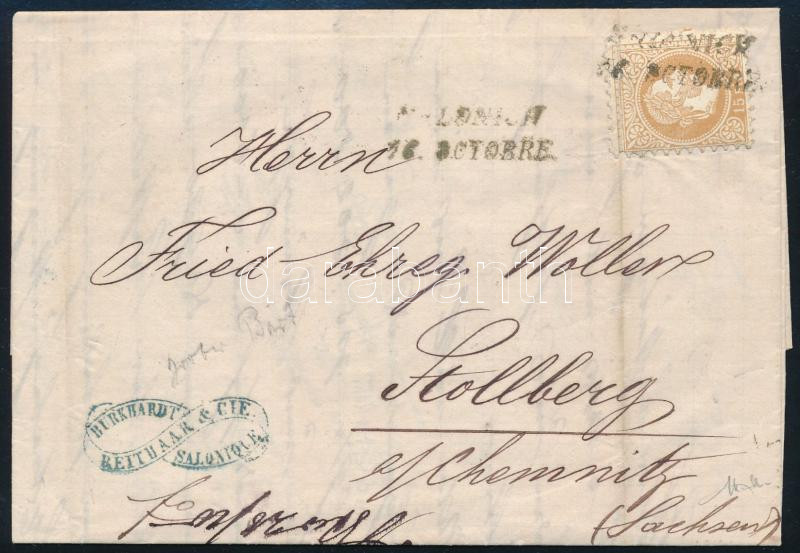 SALONICH
16. OCTOBRE
SALONICH
16. OCTOBRE
15
Herrn
Fried. Ehreg. Woller
darabanth
Stollberg
BURKHARDT
REITHAAR & CIE
SALONIQUE
b/Chemnitz
(Sachsen)